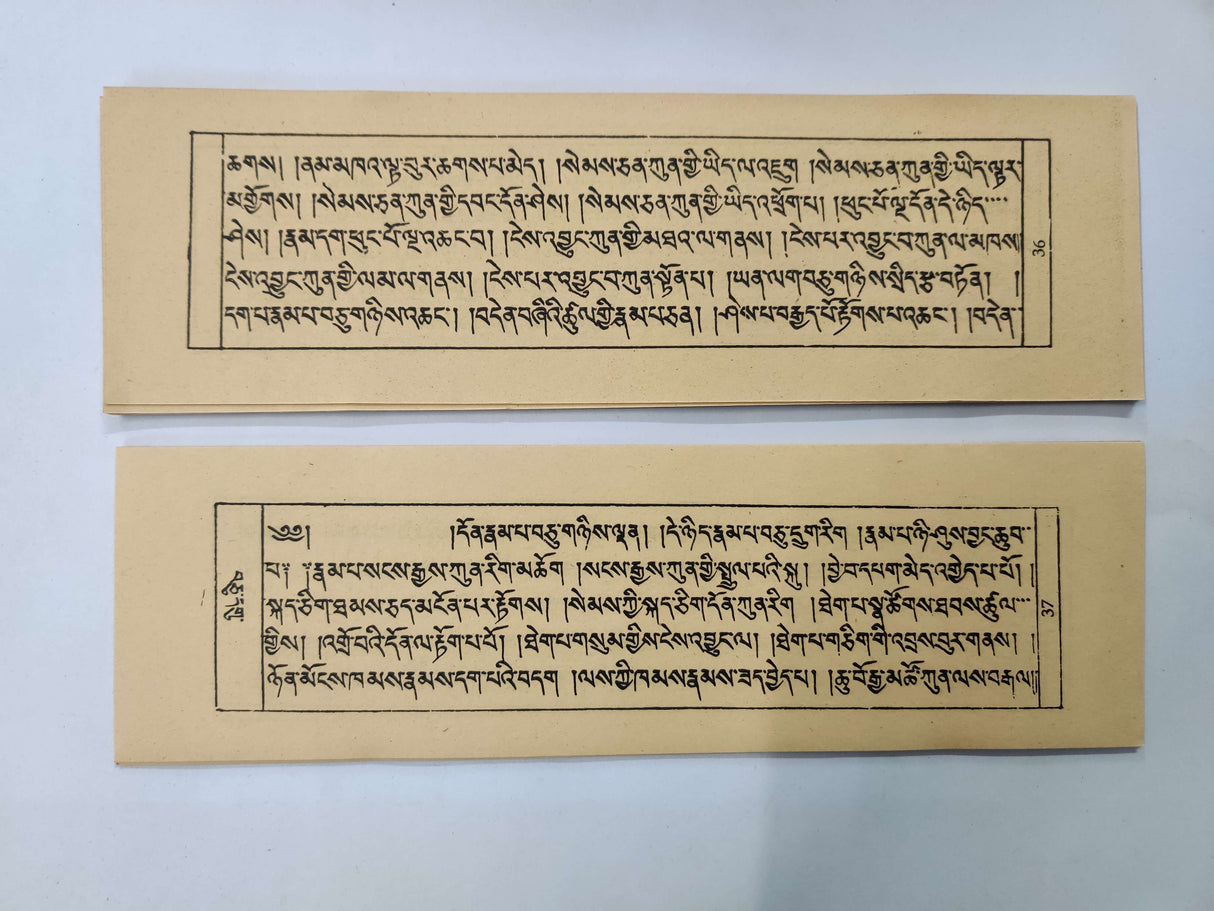 ཆགས། །ནམ་མཁའ་ལྟ་བུར་ཆགས་པ་མེད། །སེམས་ཅན་ཀུན་གྱི་ཡིད་ལ་འཇུག །སེམས་ཅན་ཀུན་གྱི་ཡིད་ལྟར་
མགྱོགས། །སེམས་ཅན་ཀུན་གྱི་དབང་དོན་ཤེས། །སེམས་ཅན་ཀུན་གྱི་ཡིད་འཕྲོག་པ། །ཕུང་པོ་ལྔ་དོན་དེ་ཉིད་
ཤེས། །རྣམ་དག་ཕུང་པོ་ལྔ་འཆང་བ། །ངེས་འབྱུང་ཀུན་གྱི་མཐའ་ལ་གནས། །ངེས་པར་འབྱུང་བ་ཀུན་ལ་མཁས།
ངེས་འབྱུང་ཀུན་གྱི་ལམ་ལ་གནས། །ངེས་པར་འབྱུང་བ་ཀུན་སྟོན་པ། །ཡན་ལག་བཅུ་གཉིས་སྲིད་རྩ་བཏོན། །
དག་པ་རྣམ་པ་བཅུ་གཉིས་འཆང་། །བདེན་བཞིའི་ཚུལ་གྱི་རྣམ་པ་ཅན། །ཤེས་པ་བརྒྱད་པོ་རྟོགས་པ་འཆང་། །བདེན་
36
༄༅། །དོན་རྣམ་པ་བཅུ་གཉིས་ལྡན། །དེ་ཉིད་རྣམ་པ་བཅུ་དྲུག་རིག །རྣམ་པ་ཉི་ཤུས་བྱང་ཆུབ་
པ༔ ༔རྣམ་པ་སངས་རྒྱས་ཀུན་རིག་མཆོག །སངས་རྒྱས་ཀུན་གྱི་སྤྲུལ་པའི་སྐུ །བྱེ་བ་དཔག་མེད་འགྱེད་པ་པོ། །
སྐད་ཅིག་ཐམས་ཅད་མངོན་པར་རྟོགས། །སེམས་ཀྱི་སྐད་ཅིག་དོན་ཀུན་རིག །ཐེག་པ་སྣ་ཚོགས་ཐབས་ཚུལ་
གྱིས། །འགྲོ་བའི་དོན་ལ་རྟོག་པ་པོ། །ཐེག་པ་གསུམ་གྱིས་ངེས་འབྱུང་ལ། །ཐེག་པ་གཅིག་གི་འབྲས་བུར་གནས། །
ཉོན་མོངས་ཁམས་རྣམས་དག་པའི་བདག །ལས་ཀྱི་ཁམས་རྣམས་ཟད་བྱེད་པ། །ཆུ་བོ་རྒྱ་མཚོ་ཀུན་ལས་བརྒལ།།
37